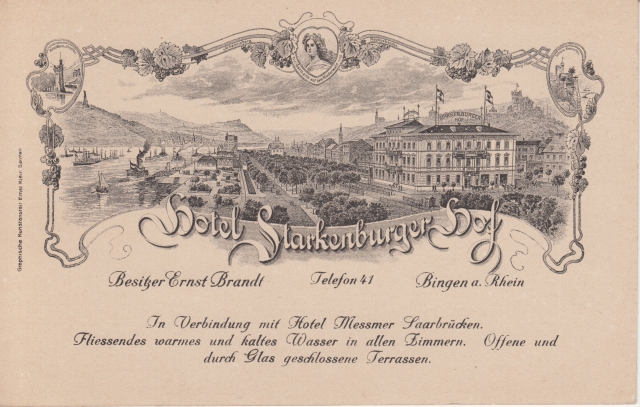 Hotel Starkenburger Hof
Besitzer Ernst Brandt Telefon 41 Bingen a. Rhein
In Verbindung mit Hotel Messmer Saarbrücken.
Fliessendes warmes und kaltes Wasser in allen Zimmern. Offene und
durch Glas geschlossene Terrassen.
Graphische Kunstanstalt Ernst